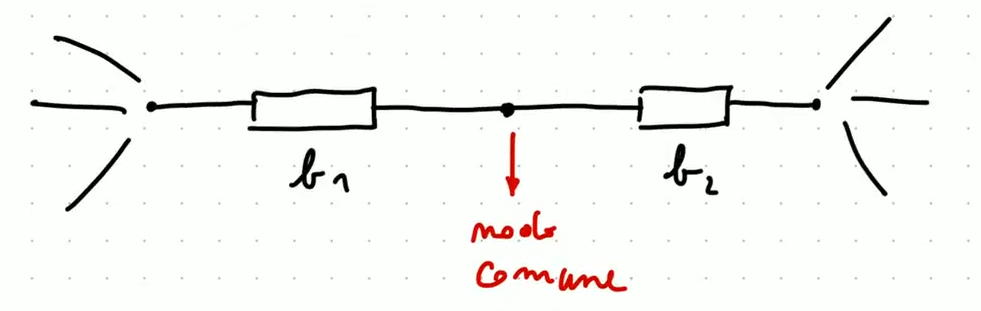 b1 b2
nodo
comune